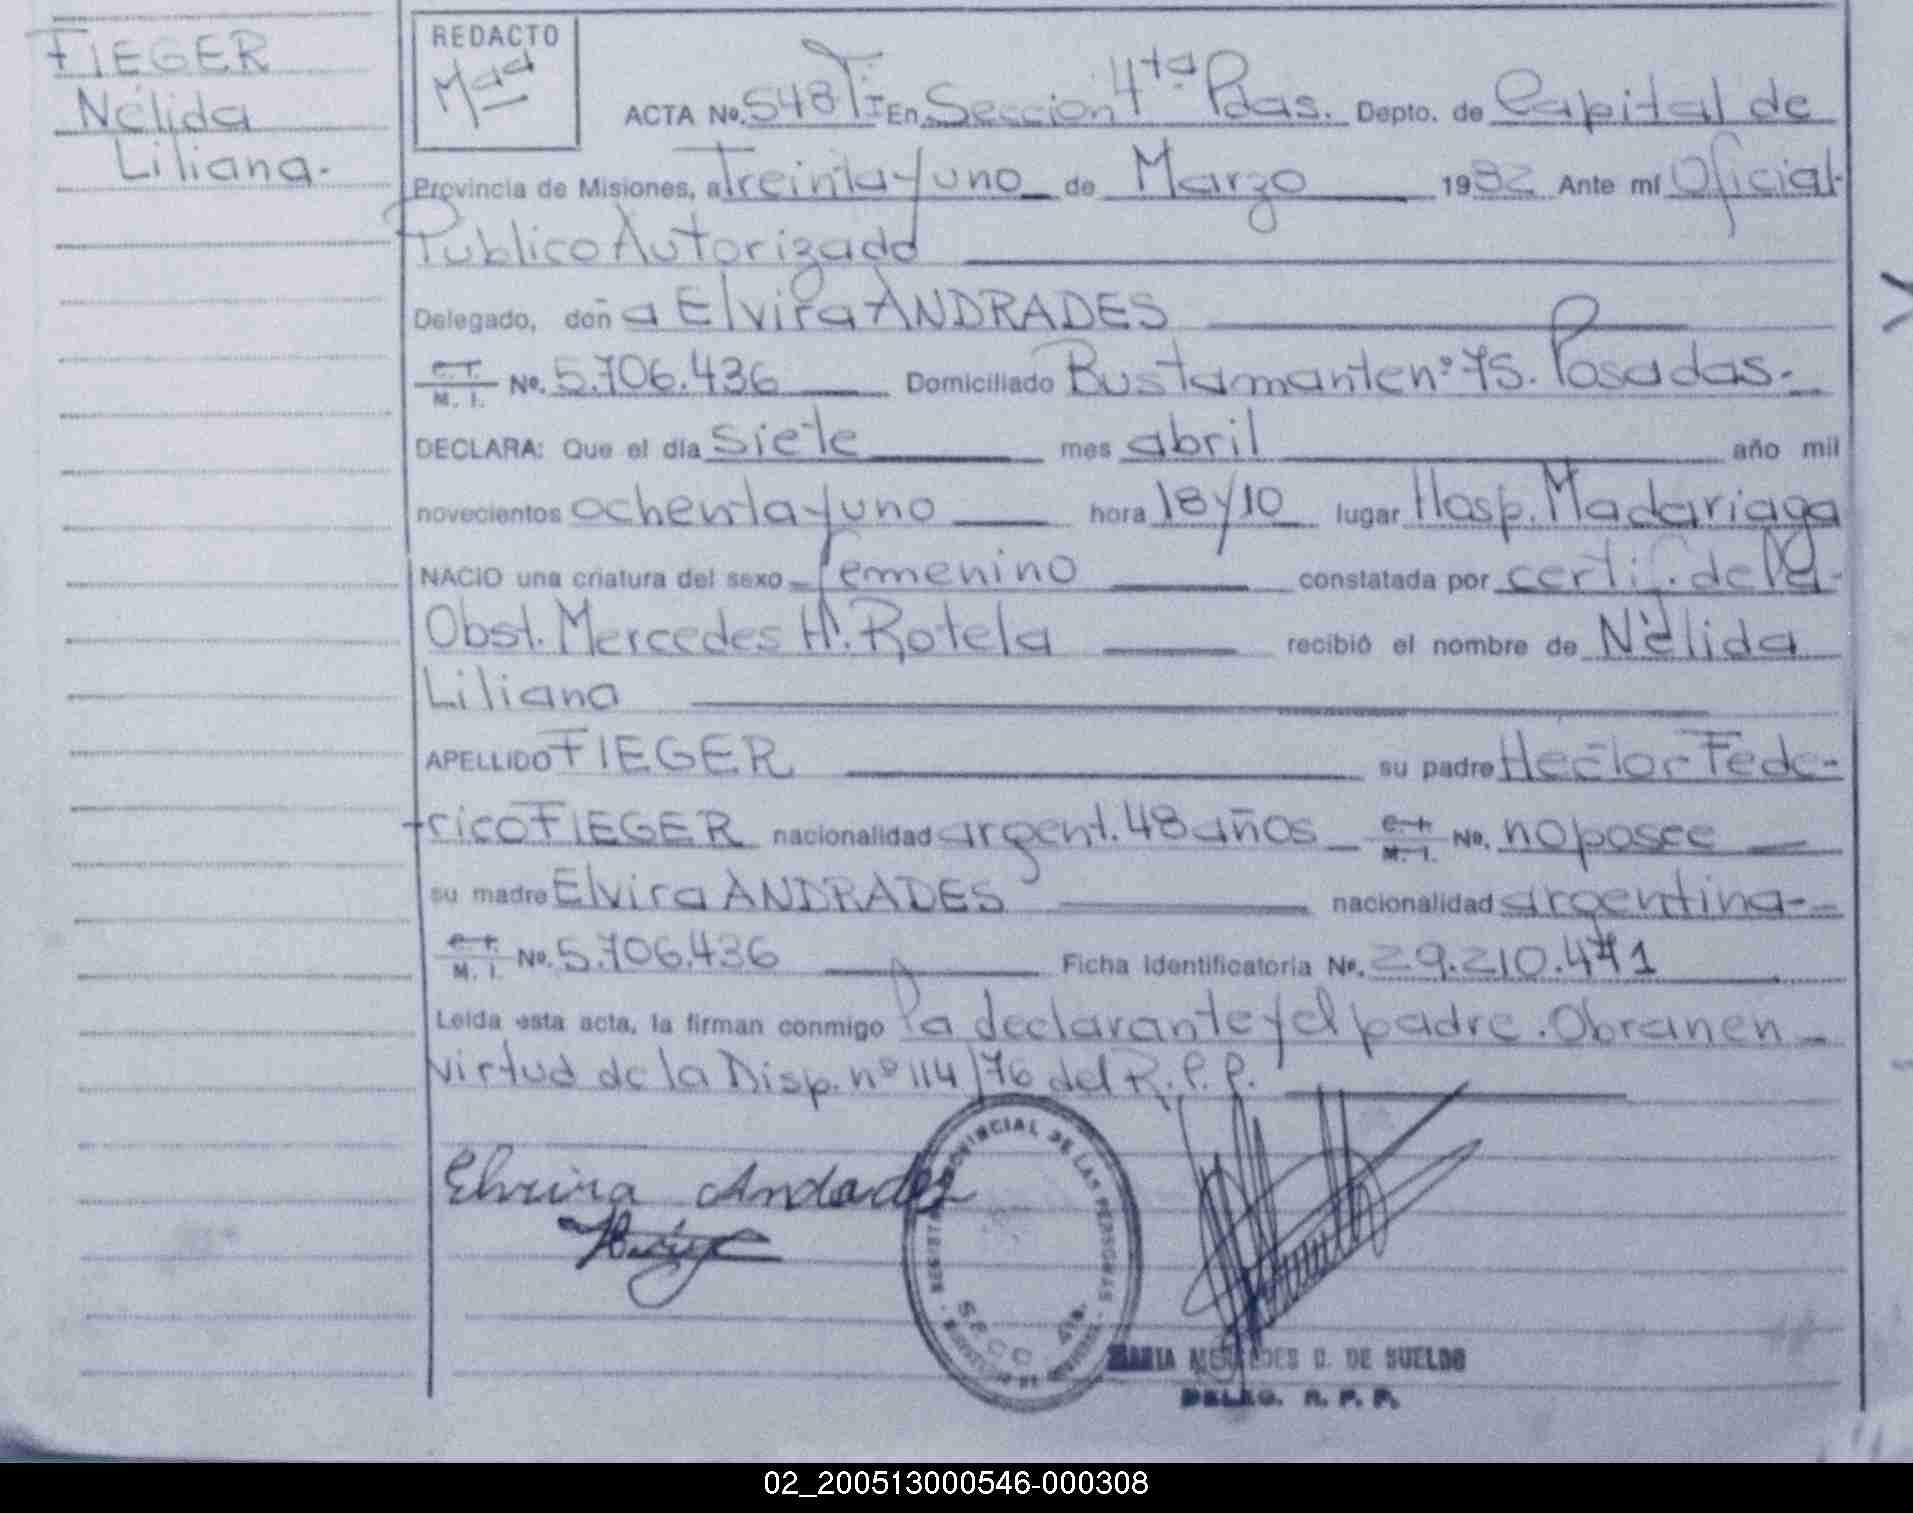 FIEGER
Nélida
Liliana.-
REDACTO
ACTA No. 548 T I En Seccion 4ta. Pdas. Depto. de Capital de
Provincia de Misiones, a Treinta y uno de Marzo 1982 Ante mí Oficial
Publico Autorizado
Delegado, doña Elvira ANDRADES
C.I. M. I. No. 5.706.436 Domiciliado Bustamante nº 75. Posadas.-
DECLARA: Que el día siete mes abril año mil
novecientos ochenta y uno hora 18 y 10 lugar Hosp. Madariaga
NACIO una criatura del sexo femenino constatada por certif. de la
Obst. Mercedes H. Rotela recibió el nombre de Nélida
Liliana
APELLIDO FIEGER su padre Hector Fede-
rico FIEGER nacionalidad argent. 48 años C.I. M. I. No. no posee
su madre Elvira ANDRADES nacionalidad argentina-
C.I. M. I. No. 5.706.436 Ficha Identificatoria No. 29.210.471
Leída esta acta, la firman conmigo la declarante y el padre. Obran en
virtud de la Disp. nº 114/76 del R.P.P.
Elvira Andrades
REGISTRO PROVINCIAL DE LAS PERSONAS
MARIA MERCEDES D. DE SUELDO
DELEG. R. P. P.
02_200513000546-000308